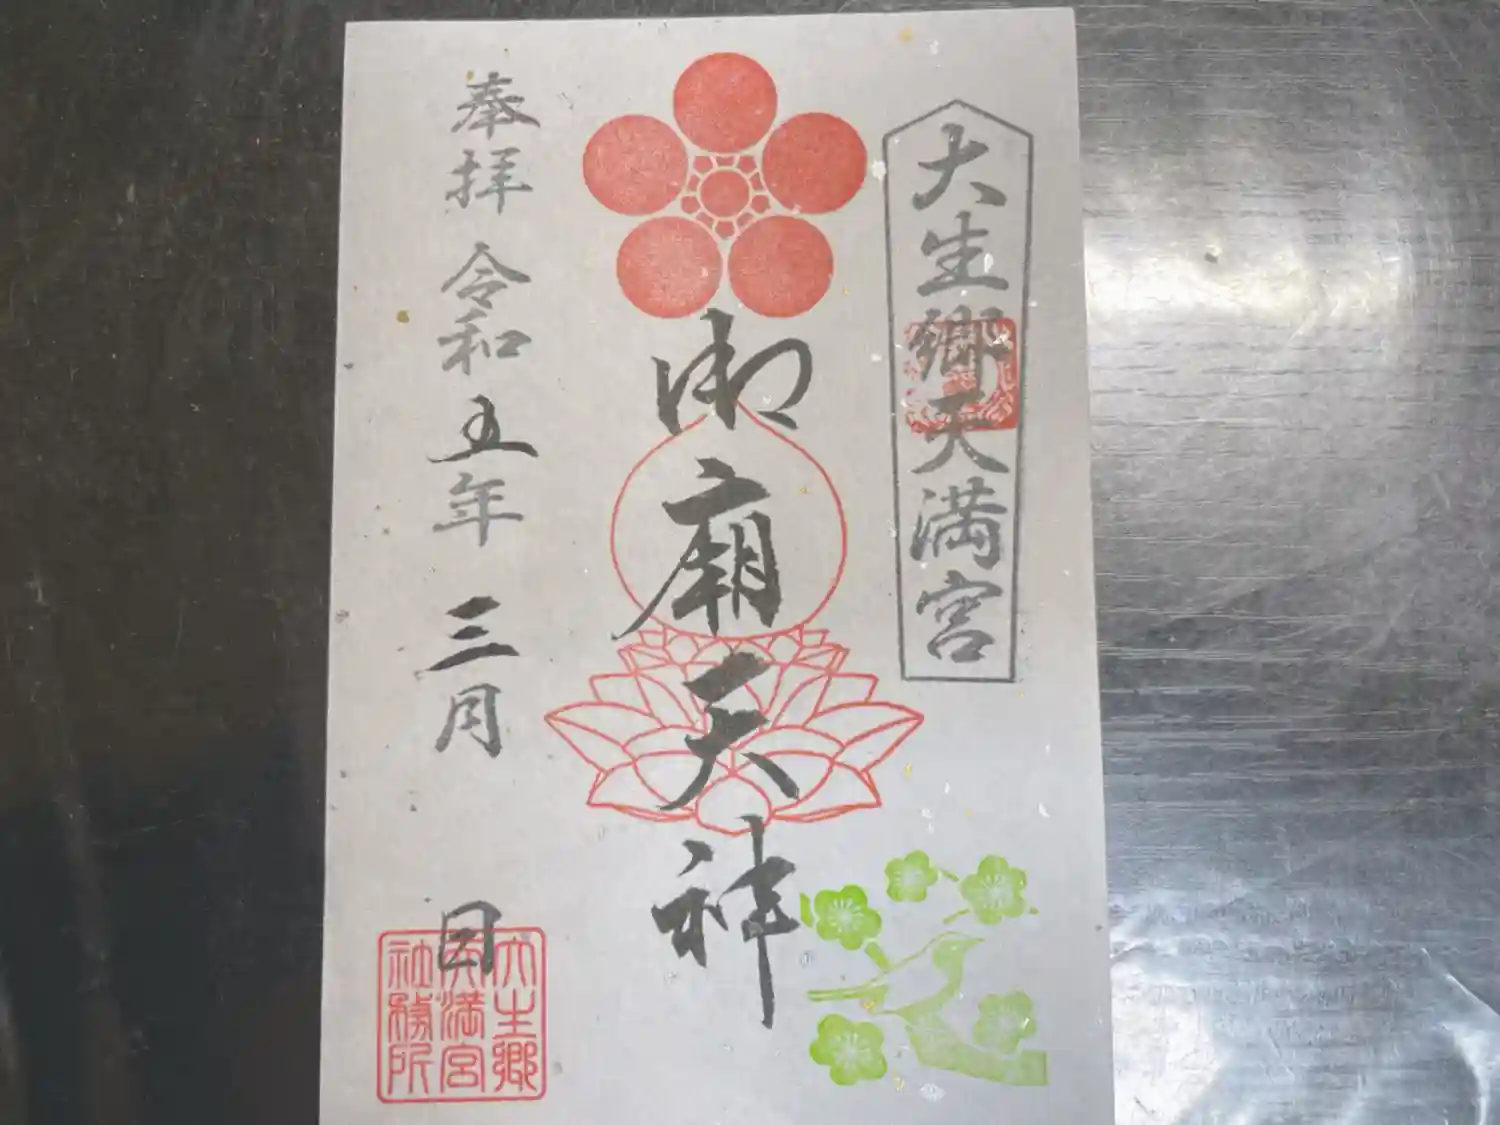 大生郷天満宮
御廟天神
奉拝 令和五年 三月 日
大生郷
天満宮
社務所